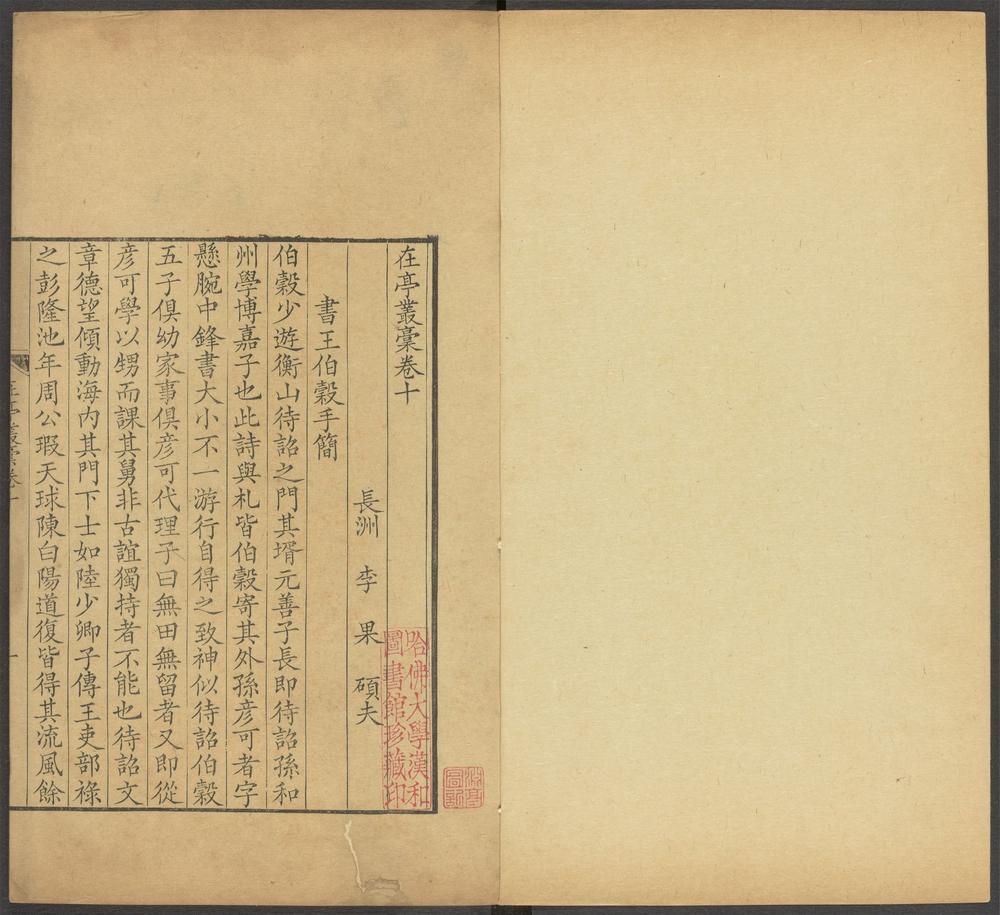 在亭叢稾卷十
長洲 李 果 碩夫
書王伯穀手簡
伯穀少遊衡山待詔之門其壻元善子長即待詔孫和
州學博嘉子也此詩與札皆伯穀寄其外孫彥可者字
懸腕中鋒書大小不一游行自得之致神似待詔伯穀
五子俱幼家事俱彥可代理子曰無田無留者又即從
彥可學以甥而課其舅非古誼獨持者不能也待詔文
章德望傾動海內其門下士如陸少卿子傳王吏部祿
之彭隆池年周公瑕天球陳白陽道復皆得其流風餘
哈佛大學漢和
圖書館珍藏印